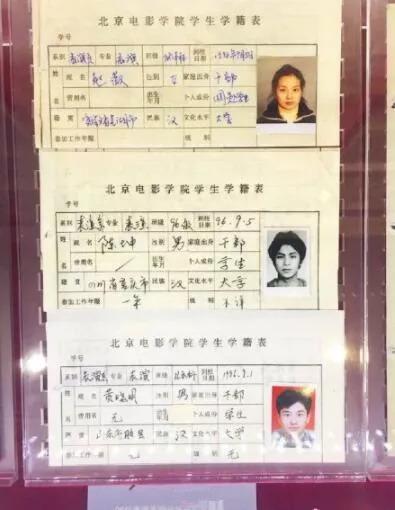 北京电影学院学生学籍表
学号
系别 表演系 专业 表演 班级 到校日期
姓名 赵薇 性别 女 家庭出身 干部
曾用名 出生年月 个人成份
籍贯 安徽省芜湖市 民族 汉 文化水平 大学
参加工作年限 级别
北京电影学院学生学籍表
学号
系别 表演系 专业 表演 班级 到校日期 96.9.5
姓名 陈坤 性别 男 家庭出身 干部
曾用名 / 出生年月 个人成份 学生
籍贯 四川省重庆市 民族 汉 文化水平 大学
参加工作年限 一年 级别 不详
北京电影学院学生学籍表
学号
系别 表演系 专业 表演 班级 到校日期 1996.9.1
姓名 黄晓明 性别 男 家庭出身 干部
曾用名 无 个人成份 学生
籍贯 山东省 民族 汉 文化水平 大学
参加工作年限 无 级别 无